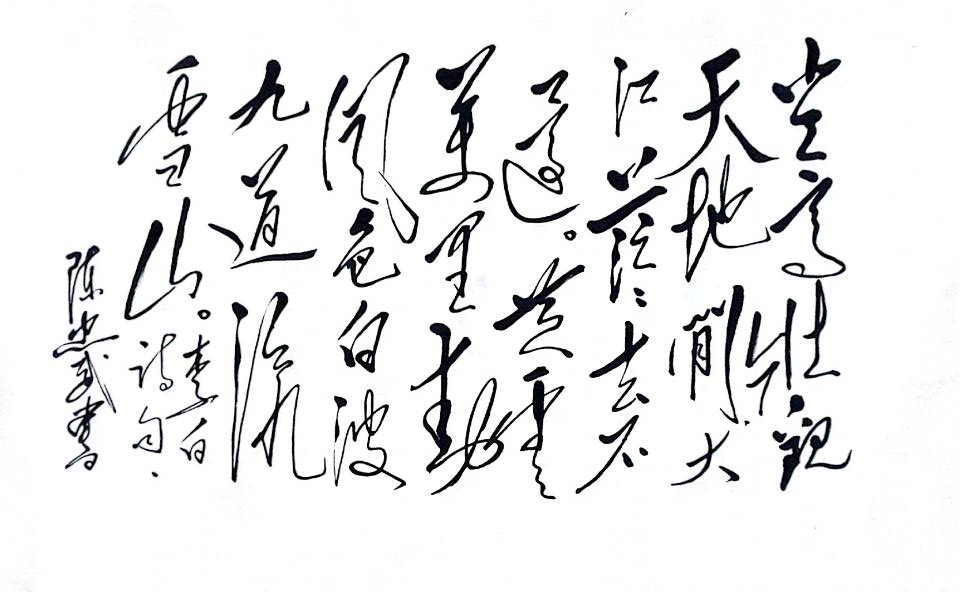 登高壮观
天地间大
江茫茫去不
还。黄云
万里动
风色白波
九道流
雪山。李白
诗句、
陈忠武书